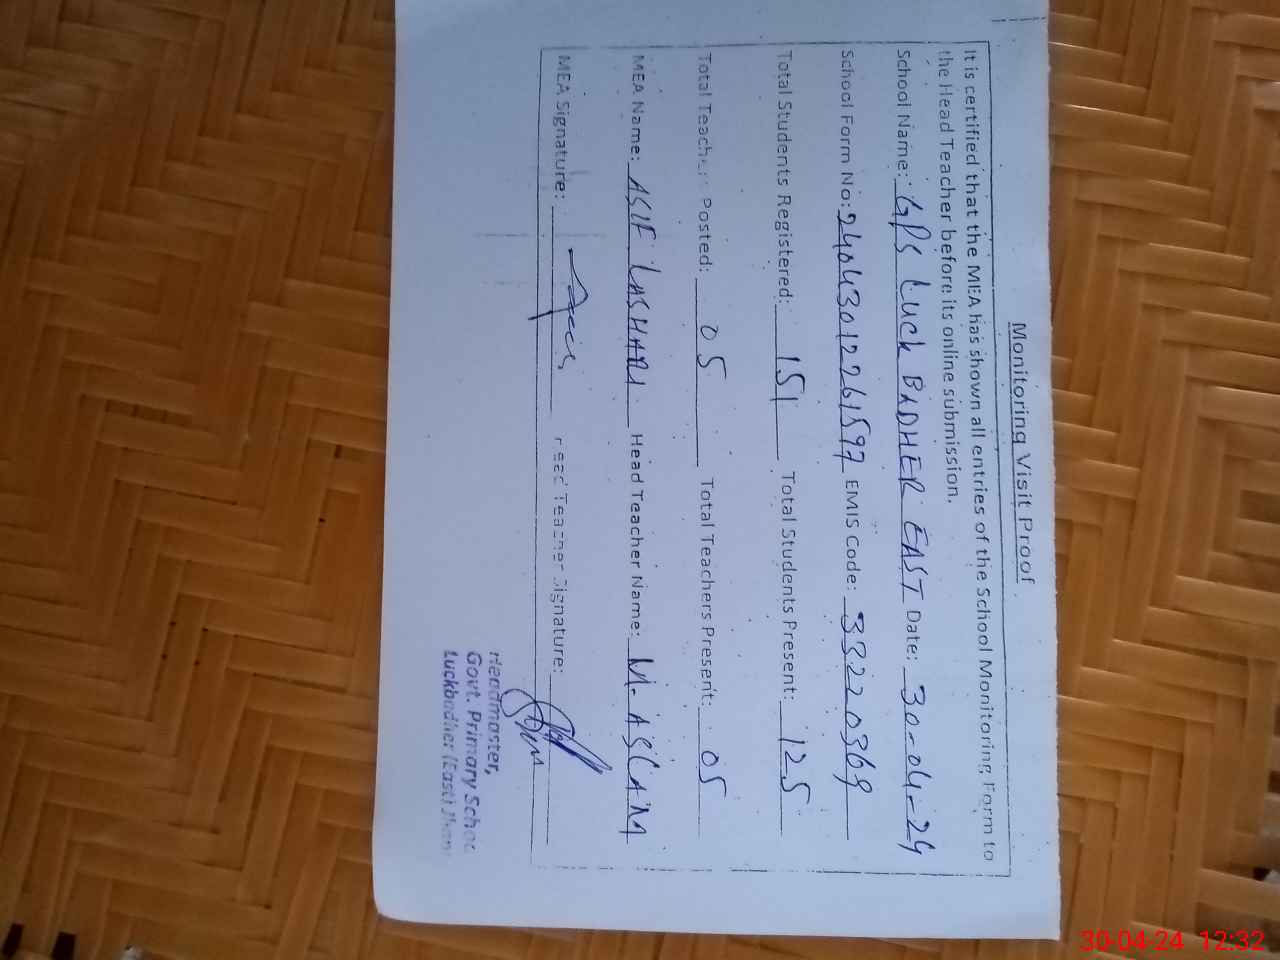 Monitoring Visit Proof
It is certified that the MEA has shown all entries of the School Monitoring Form to
the Head Teacher before its online submission.
School Name: GPS Luck BADHER EAST Date: 30-04-24
School Form No: 24043012261597 EMIS Code: 33220369
Total Students Registered: 151 Total Students Present: 125
Total Teachers Posted: 05 Total Teachers Present: 05
MEA Name: ASIF LASHARI Head Teacher Name: M. ASLAM
MEA Signature: Head Teacher Signature:
Headmaster,
Govt. Primary School
Luckbadher (East)
30-04-24 12:32